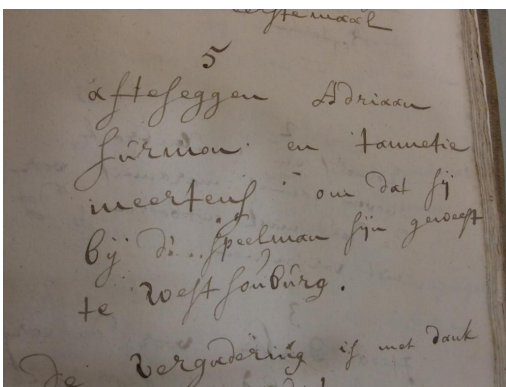 eerstemaal
5
afteseggen Adriaan
surmon en tannetie
meertens om dat sij
bij di speelman sijn geweest
te westsouburg.
De vergadering is met dank